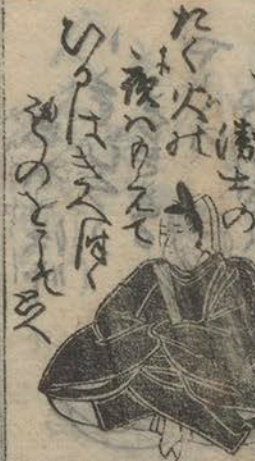 衛士の
たく火の
夜はもえて
ひるはきえつゝ
ものをこそ思へ